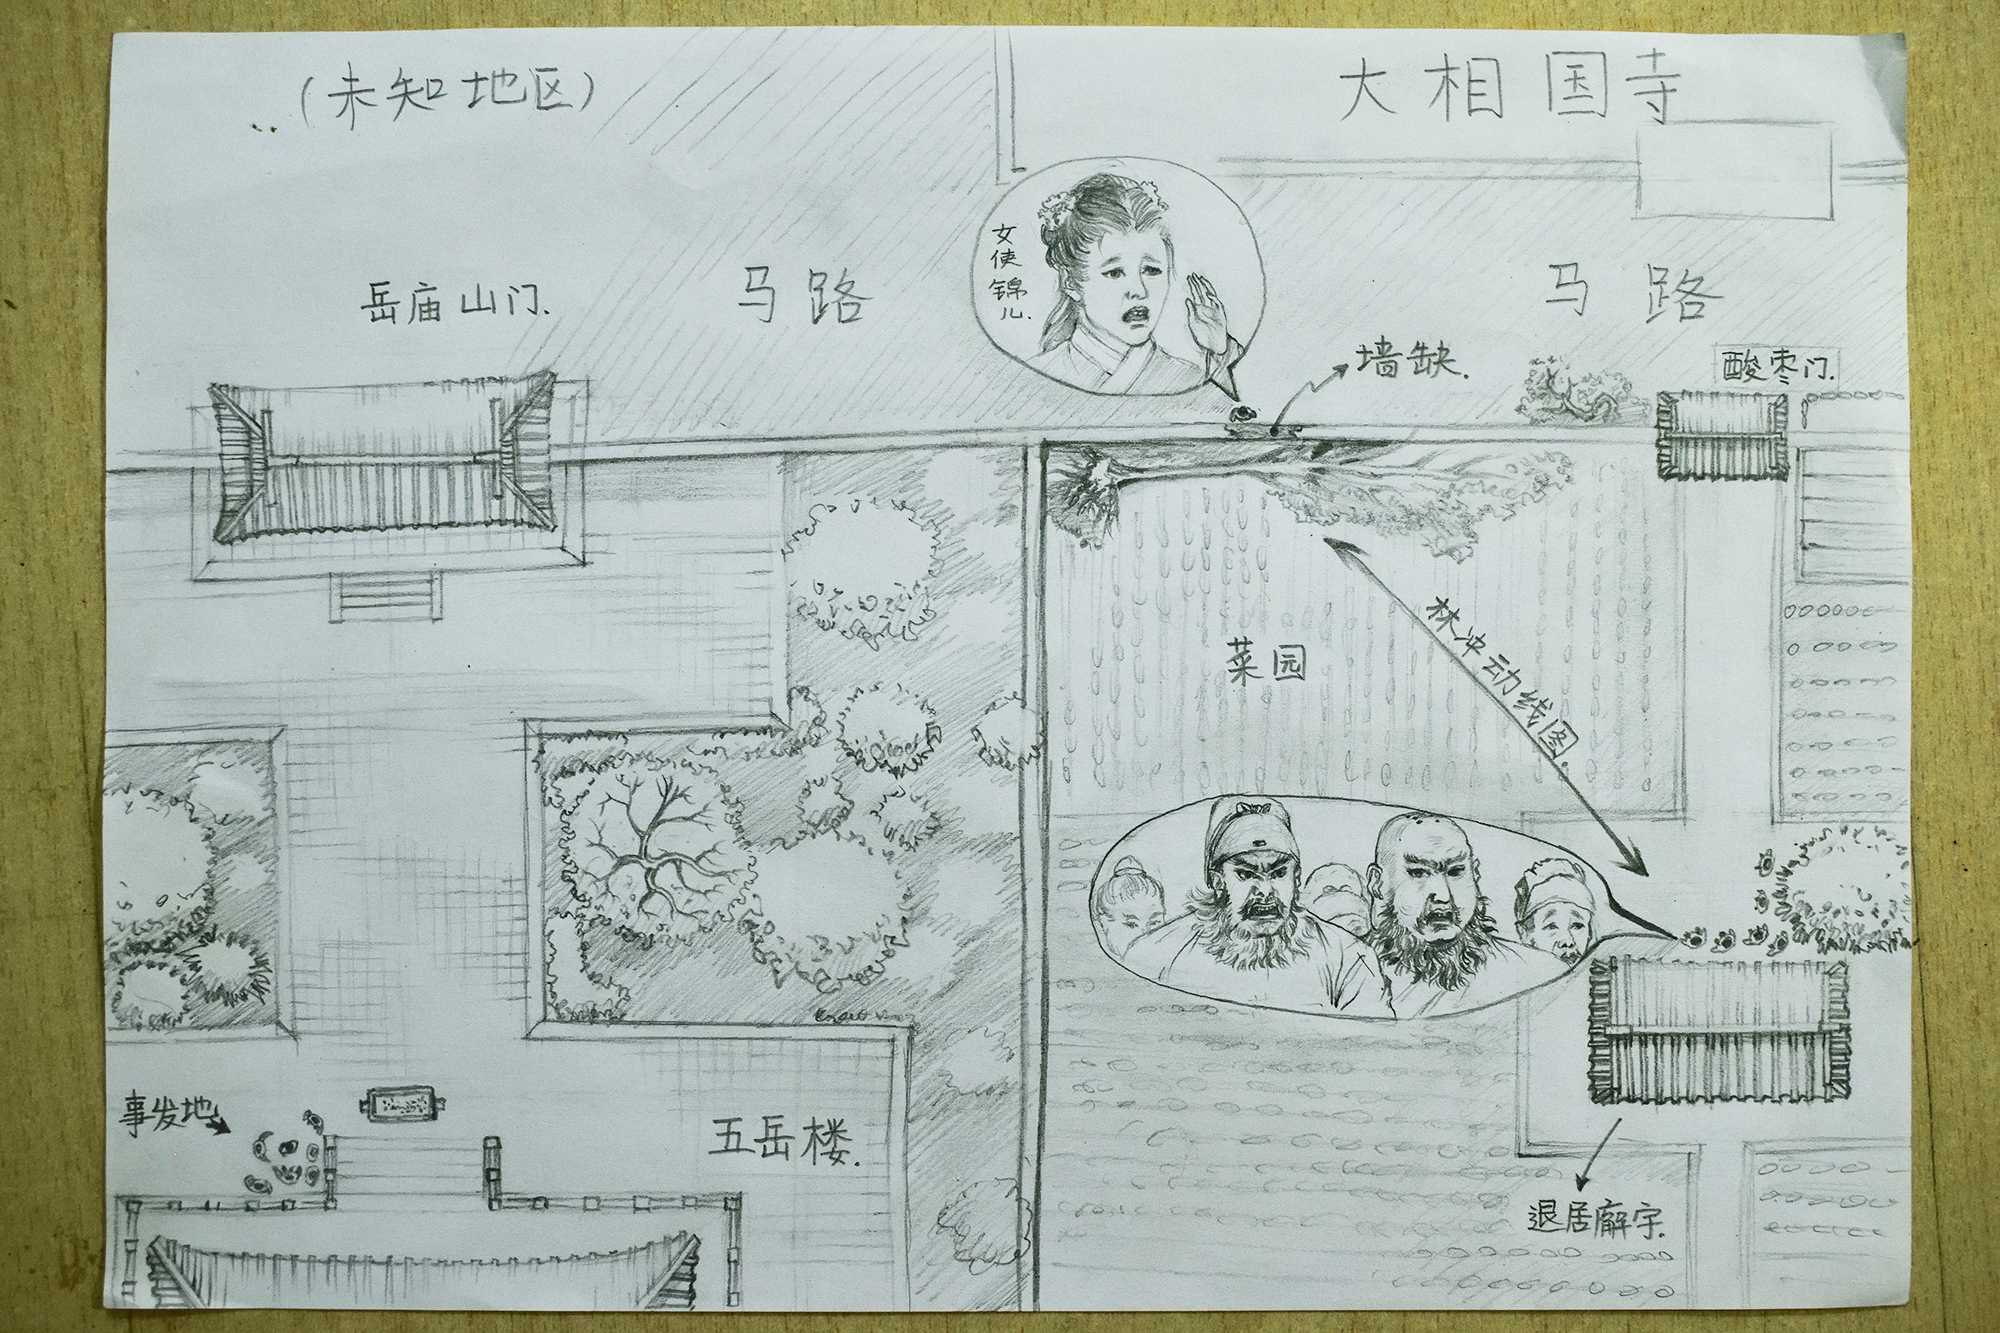 (未知地区)
大相国寺
女使锦儿.
岳庙山门.
马路
马路
墙缺.
酸枣门.
林冲动线图.
菜园
事发地
五岳楼.
退居廨宇.